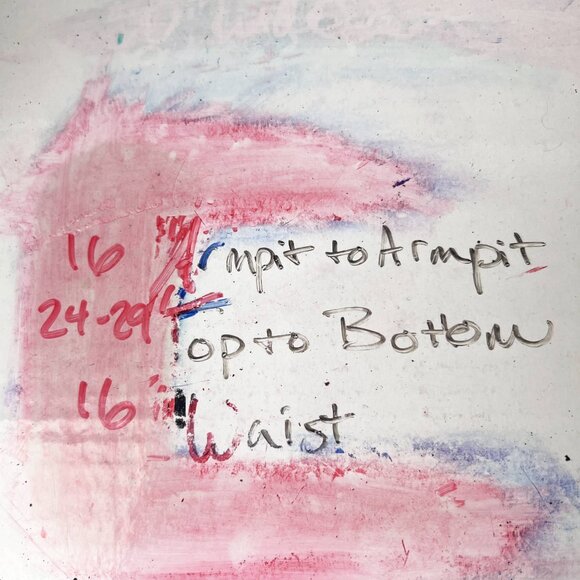 16 Armpit to Armpit
24-29 Top to Bottom
16 Waist